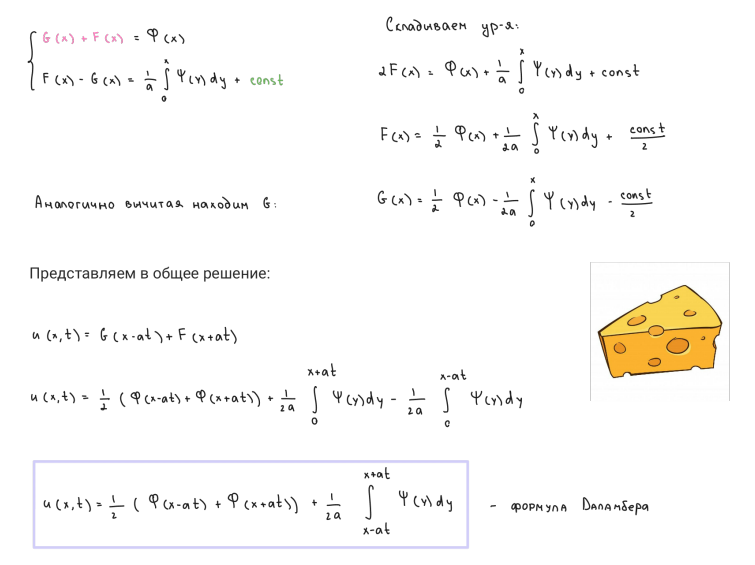 G(x) + F(x) = φ(x)
F(x) - G(x) = 1/a ∫₀ˣ Ψ(y) dy + const
Складываем ур-я:
2F(x) = φ(x) + 1/a ∫₀ˣ Ψ(y) dy + const
F(x) = 1/2 φ(x) + 1/2a ∫₀ˣ Ψ(y) dy + const/2
Аналогично вычитая находим G:
G(x) = 1/2 φ(x) - 1/2a ∫₀ˣ Ψ(y) dy - const/2
Представляем в общее решение:
u(x,t) = G(x-at) + F(x+at)
u(x,t) = 1/2 (φ(x-at) + φ(x+at)) + 1/2a ∫₀ˣ⁺ᵃᵗ Ψ(y) dy - 1/2a ∫₀ˣ⁻ᵃᵗ Ψ(y) dy
u(x,t) = 1/2 (φ(x-at) + φ(x+at)) + 1/2a ∫ₓ₋ₐₜˣ⁺ᵃᵗ Ψ(y) dy - формула Даламбера